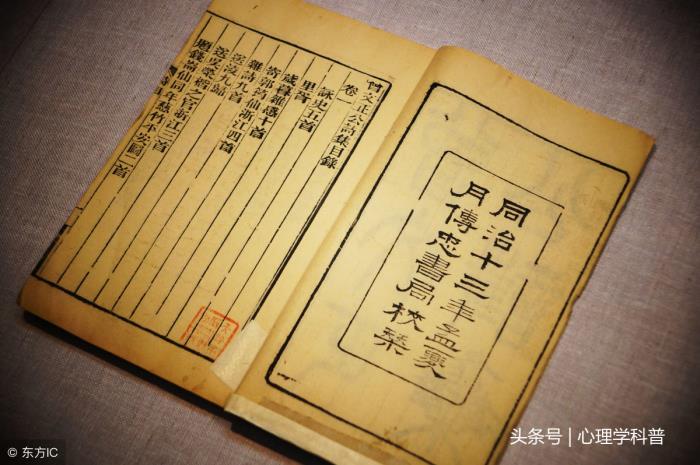 同治十三年孟夏
月傳忠書局校栞
曾文正公詩集目錄
卷一
詠史五首
里胥
歲暮雜感十首
寄郭筠仙浙江四首
雜詩九首
送凌九歸
送吳榮楷之官浙江三首
題錢崙仙同年慈竹平安圖二首
© 东方IC
头条号 | 心理学科普